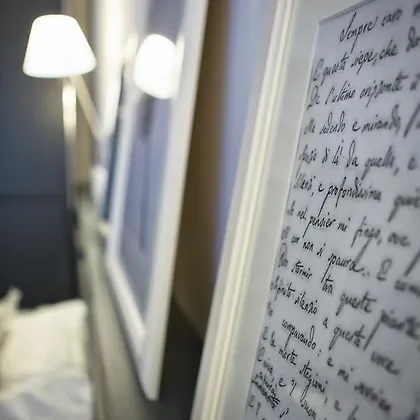 Sempre caro m
E questa siepe, che da
De l'ultimo orizzonte il
Ma sedendo e mirando, l'
Spazio di là da quella, e
Silenzi, e profondissima quie
Io nel pensier mi fingo, ove
Il cor non si spaura. E come
Odo stormir tra queste piante,
Infinito silenzio a questa voce
Vo comparando: e mi sovvien
E le morte stagioni, e
E viva, e